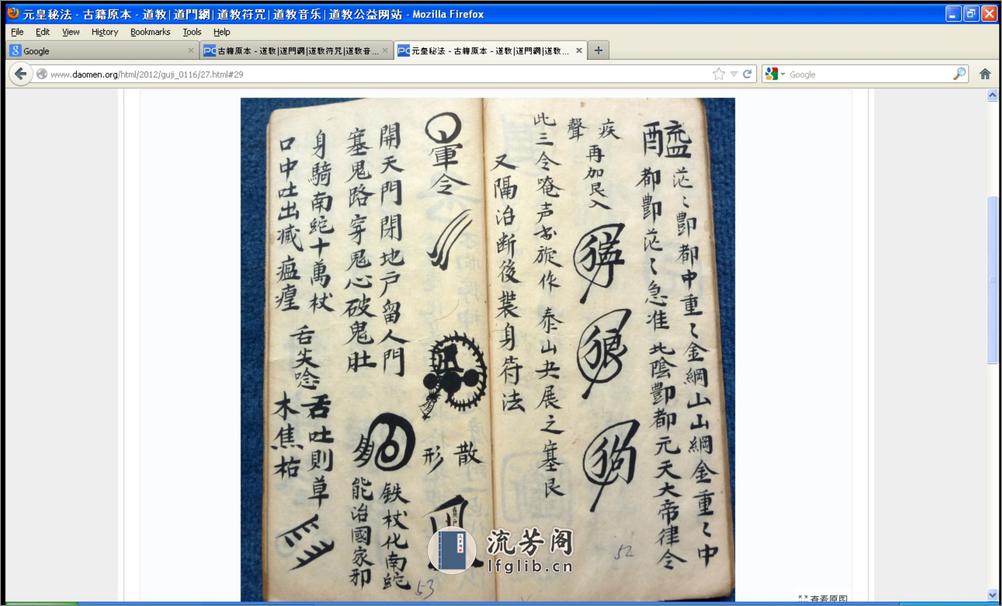 元皇秘法 - 古籍原本 - 道教|道門網|道教符咒|道教音乐|道教公益网站 - Mozilla Firefox
File Edit View History Bookmarks Tools Help
Google
古籍原本 - 道教|道門網|道教符咒|道教音...
元皇秘法 - 古籍原本 - 道教|道門網|道教...
www.daomen.org/html/2012/guji_0116/27.html#29
Google
茫〻酆都中重〻金綱山山綱金重〻中
都酆茫〻急准北陰酆都元天大帝律令
疾
聲
再加艮入
此三令唵声为旅作泰山央展之塞艮
又隔治断後裝身符法
軍令
散
形
開天門閉地户留人門
塞鬼路穿鬼心破鬼肚
铁杖化南蛇
能治國家邪
身騎南蛇十萬杖
口中吐出减瘟瘟
舌尖唸
舌吐則草
木焦祜
52
53
流芳阁
lfglib.cn
查看原图